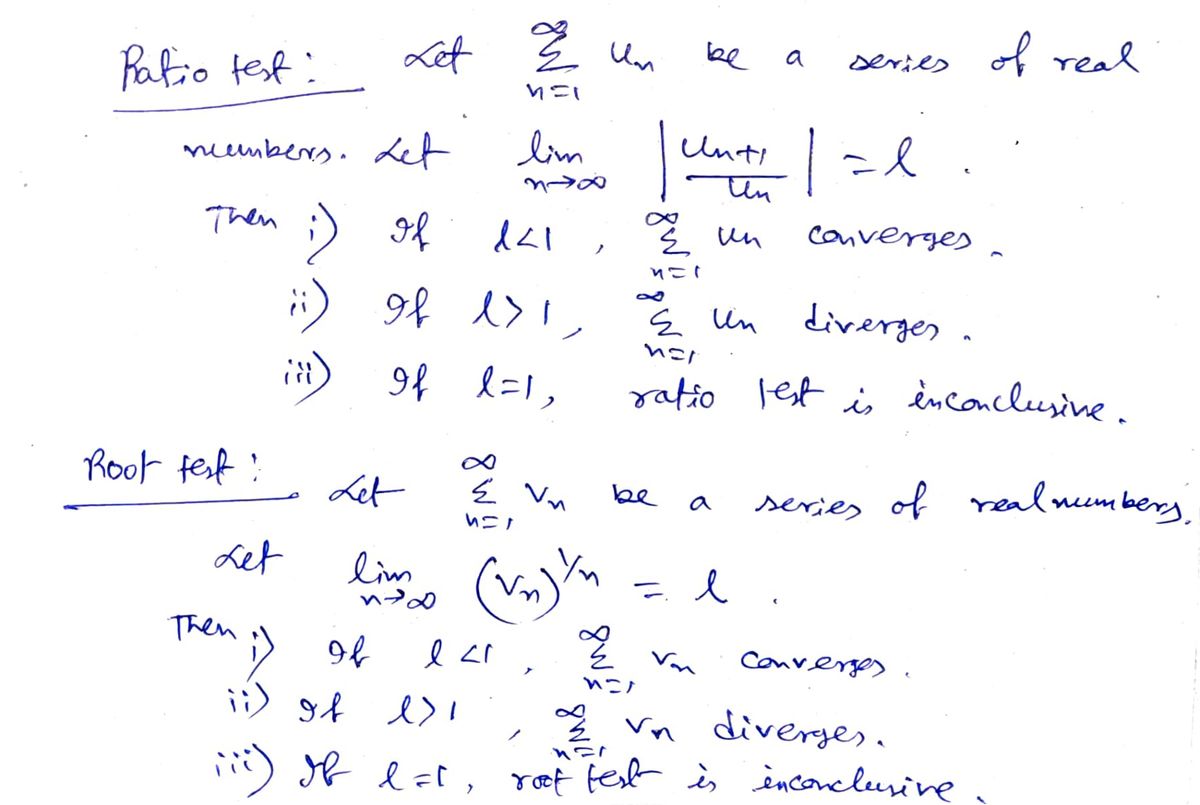 Ratio test: Let ∑_{n=1}^{∞} u_n be a series of real
numbers. Let lim_{n→∞} |u_{n+1}/u_n| = l.
Then i) If l<1, ∑_{n=1}^{∞} u_n converges.
ii) If l>1, ∑_{n=1}^{∞} u_n diverges.
iii) If l=1, ratio test is inconclusive.
Root test: Let ∑_{n=1}^{∞} v_n be a series of real numbers.
Let lim_{n→∞} (v_n)^{1/n} = l.
Then i) If l<1, ∑_{n=1}^{∞} v_n converges.
ii) If l>1, ∑_{n=1}^{∞} v_n diverges.
iii) If l=1, root test is inconclusive.